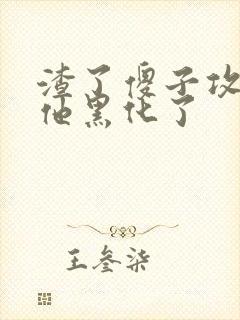 渣了傻子攻
他黑化了
王叁柒